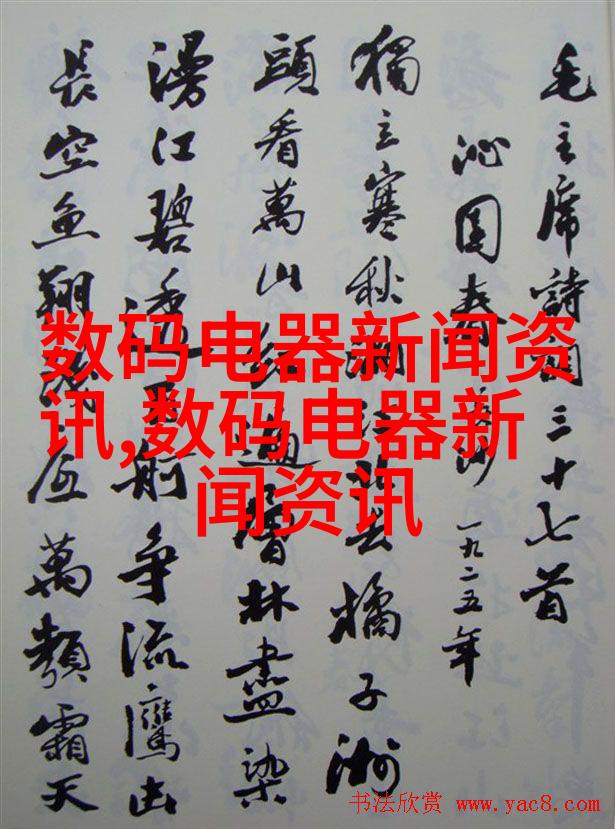 毛主席詩詞三十七首
沁园春 長沙 一九二五年
獨立寒秋湘江北去橘子洲
頭看萬山红遍層林盡染
漫江碧透百舸争流鷹击
長空魚翔淺底萬類霜天
数码电器新闻资
讯,数码电器新
闻资讯
书法欣赏 www.yac8.com